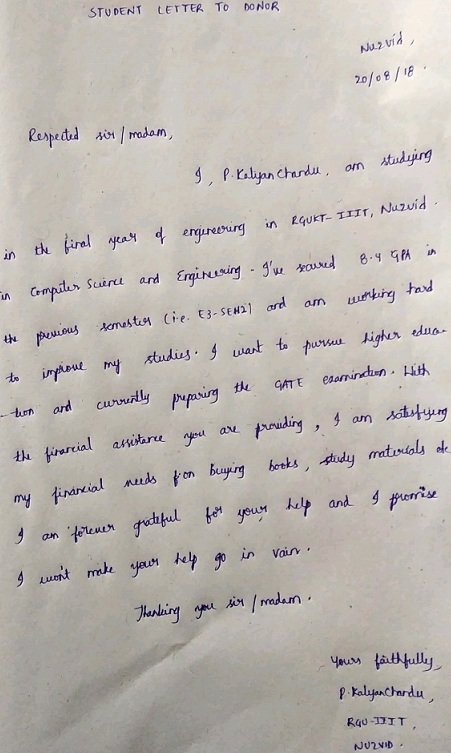 STUDENT LETTER TO DONOR
Nuzvid,
20/08/18.
Respected sir/madam,
I, P. Kalyan Chandu, am studying
in the final year of engineering in RGUKT-IIIT, Nuzvid.
in Computer Science and Engineering. I've secured 8.4 GPA in
the previous semester (i.e. E3-SEM2) and am working hard
to improve my studies. I want to pursue higher educa-
-tion and currently preparing the GATE examination. With
the financial assistance you are providing, I am satisfying
my financial needs for buying books, study materials etc
I am forever grateful for your help and I promise
I won't make your help go in vain.
Thanking you sir/madam.
Yours faithfully,
P. Kalyan Chandu,
RGU-IIIT,
NUZVID.